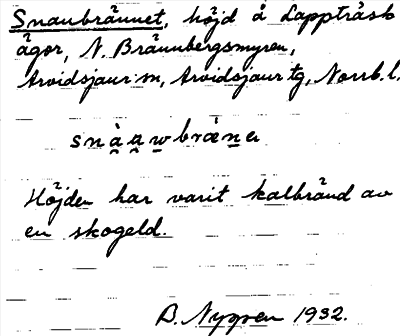 Snaubrännet, höjd å Lappträsk
ägor, N. Brännbergsmyren,
Arvidsjaur sn, Arvidsjaur tg, Norrb. l.
snàa̲w̲bræn̲e
Höjden har varit kalbränd av
en skogeld.
B. Nygren 1932.